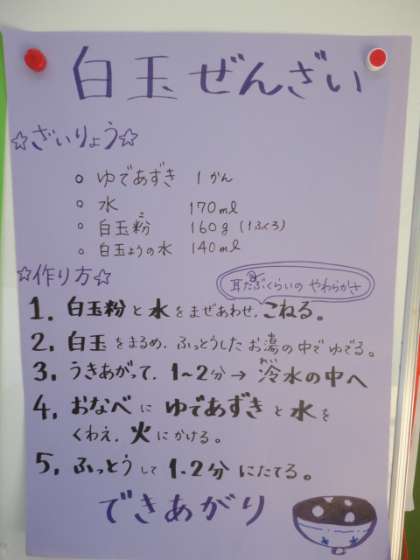 白玉ぜんざい
☆ざいりょう☆
○ ゆであずき 1かん
○ 水 170ml
○ 白玉粉こ 160g (1ふくろ)
○ 白玉ようの水 140ml
☆作り方☆
耳たぶくらいの やわらかさ
1. 白玉粉と水をまぜあわせ、こねる。
2. 白玉をまるめ、ふっとうしたお湯の中でゆでる。
3. うきあがって、1~2分→冷水の中へ
4. おなべにゆであずきと水を
くわえ、火にかける。
5. ふっとうして1.2分にたてる。
できあがり